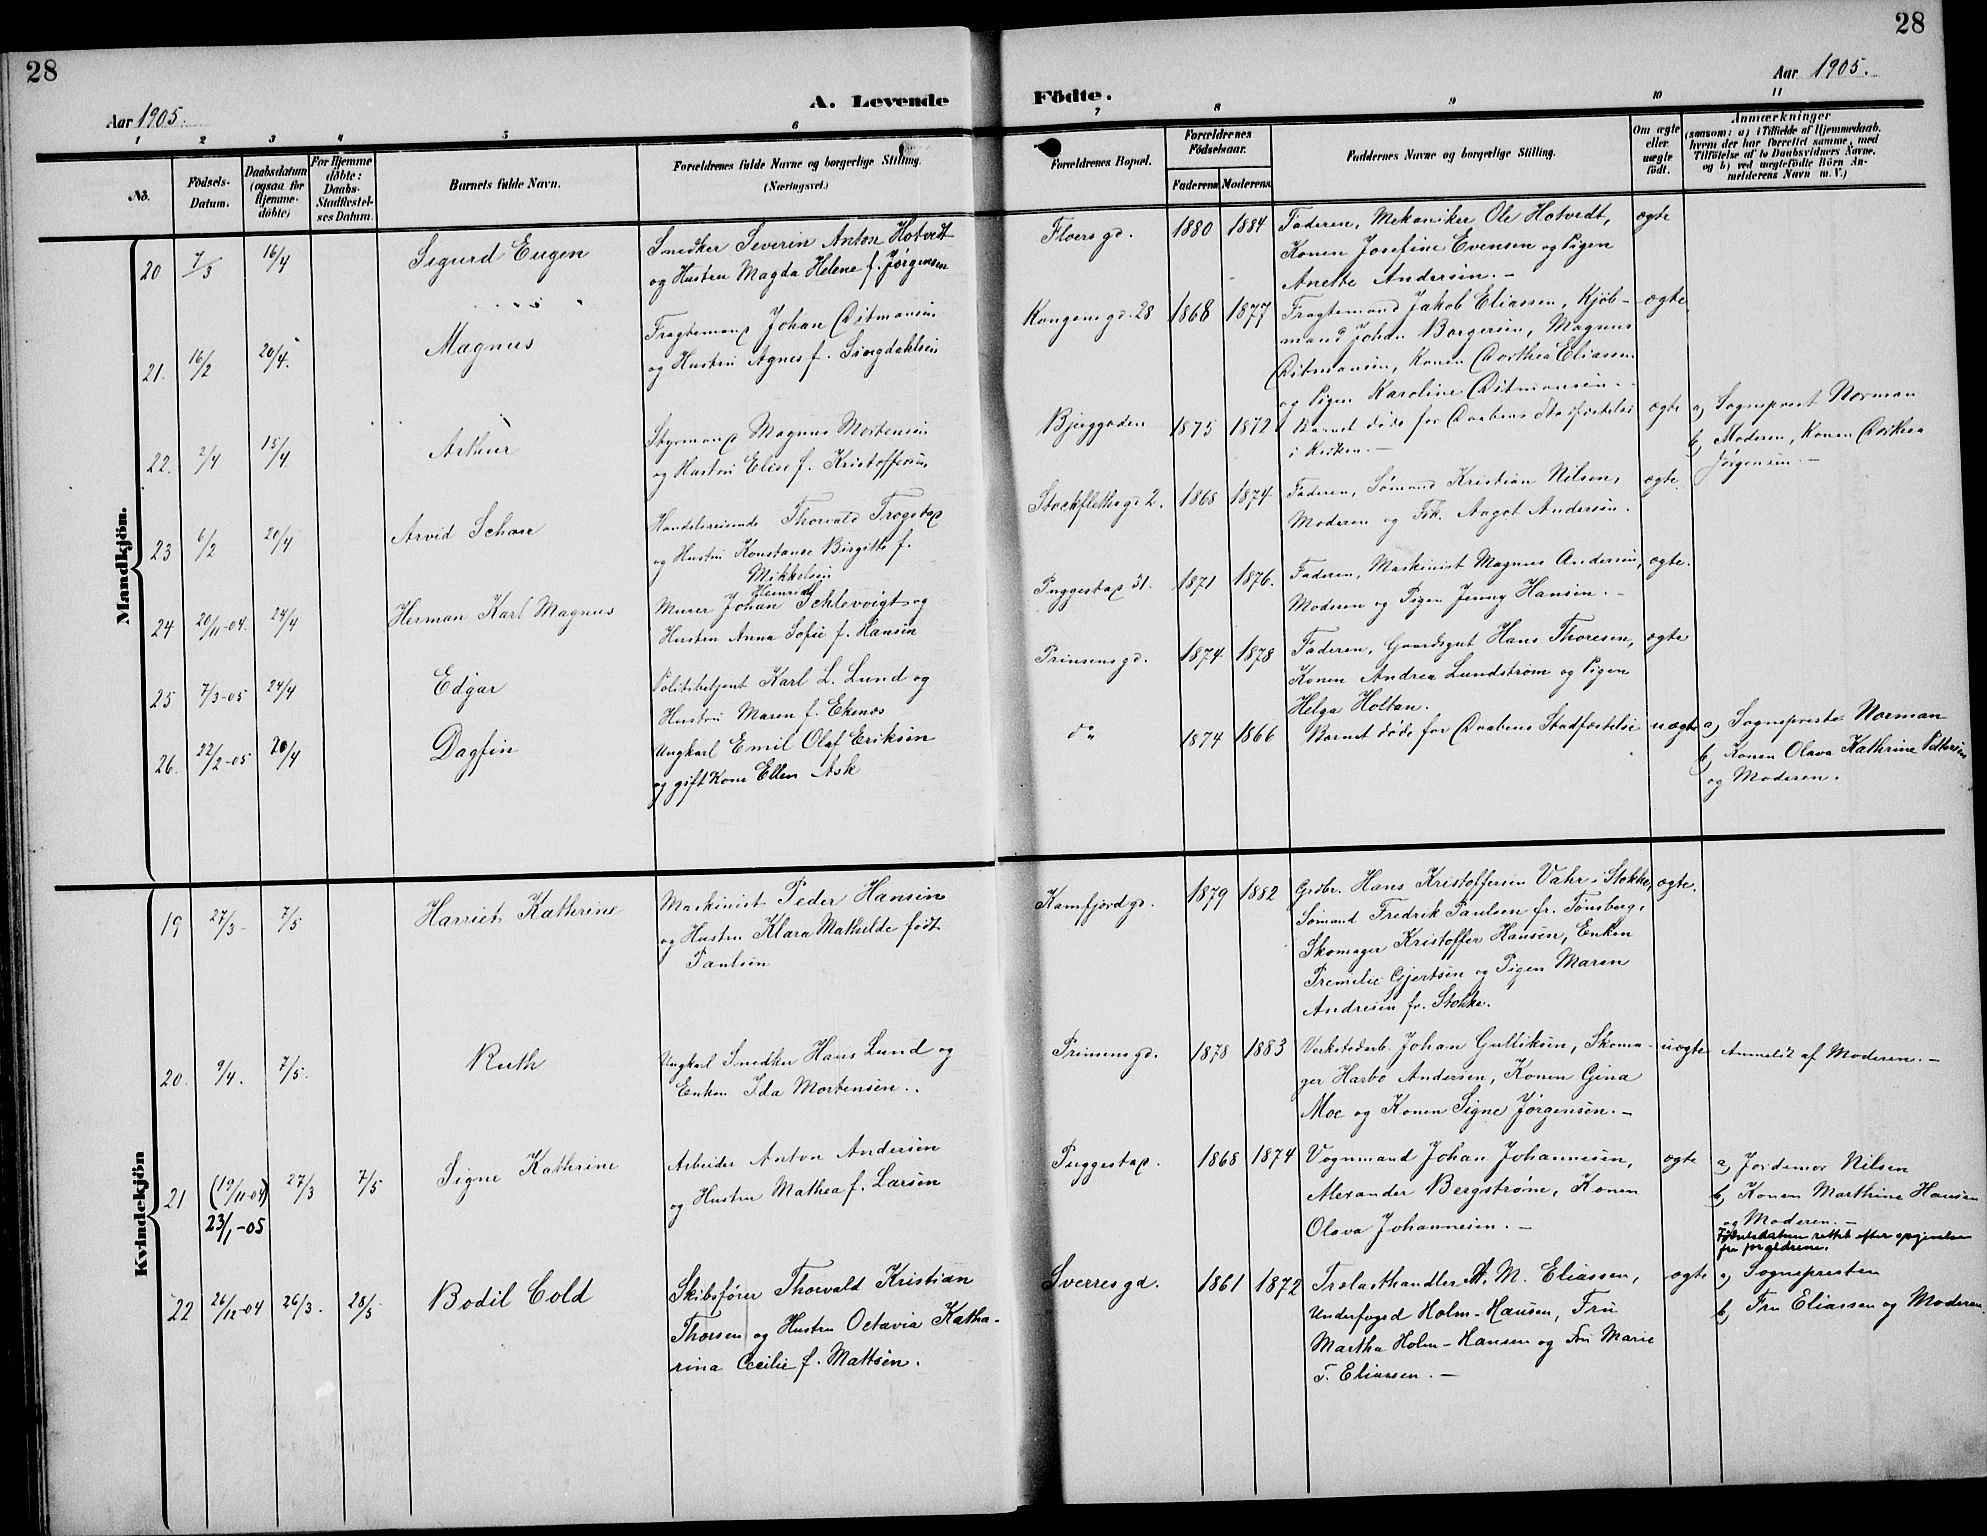 28
28
Aar 1905.
A. Levende Födte.
Aar 1905.
1 2 3 4 5 6 7 8 9 10 11
No.
Födsels-Datum.
Daabsdatum (ogsaa for Hjemme-döbte)
For Hjemme döbte: Daabs-Stadfæstel-ses Datum.
Barnets fulde Navn.
Forældrenes fulde Navne og borgerlige Stilling.
(Næringsvei.)
Forældrenes Bopæl.
Forældrenes Födselsaar.
Faderens Moderens
Faddernes Navne og borgerlige Stilling.
Om ægte eller uægte födt.
Anmærkninger
(saasom: a) i Tilfælde af Hjemmedaab,
hvem der har forrettet samme, med
Tilföielse af to Daabsvidners Navne,
og b) ved uægtefödte Börn An-
melderens Navn m. V.)
Mandkjön.
20 7/3 16/4 Sigurd Eugen
Snedker Severin Anton Hotvedt
og Hustru Magda Helene f. Jørgensen
Floersgd. 1880 1884
Faderen, Mekaniker Ole Hotvedt,
Konen Josefine Evensen og Pigen
Anette Andersen. –
ægte
21. 16/2 20/4. Magnus
Fragtemand Johan Ditmansen
og Hustru Agnes f.
Kongensgd. 28 1868 1877
Fragtemand Jakob Eliassen, Kjöb-
mand Johan Borgersen, Magnus
Ditmansen, Konen Dorthea Eliassen
og Pigen Karoline Ditmansen. –
ægte
22. 2/4 15/4 Arthur
Styrmand Magnus Mortensen
og Hustru Elise f. Kristoffersen
1875 1872
Barnet døde før Daabens Stadfæstelse
i Kirken. –
ægte
a) Sogneprest Norman
b) Moderen, Konen Dorthea
Jørgensen. –
23 6/2 20/4 Arvid
Handelsreisende Thorvald Trogstad
og Hustru Konstanse Birgitte f.
Mikkelsen
Stockflethsgd 2. 1868 1874
Faderen, Sømand Kristian Nilsen,
Moderen og Frk. Aagot Andersen.
ægte.
24 20/11-04. 24/4 Herman Karl Magnus
Heinrich
Murer Johan Schlevoigt og
Hustru Anna Sofie f. Hansen
Puggestad 31. 1871 1876.
Faderen, Maskinist Magnus Andersen,
Moderen og Pigen Jenny Hansen. –
ægte.
25 7/3-05 24/4 Edgar
Politibetjent Karl L. Lund og
Hustru Maren f. Ekenæs
Prinsensgd. 1874 1878
Faderen, Gaardsgut Hans Thoresen,
Konen Andrea Lundstrøm og Pigen
Helga Holtan.
ægte
26. 22/2-05 20/4 Dagfin
Ungkarl Emil Olaf Eriksen
og gift Kone Ellen Ask
do 1874 1866
Barnet døde før Daabens Stadfæstelse
uægte
a) Sogneprest Norman
b) Konen Olava Kathrine Pettersen
og Moderen.
Kvindekjön
19 27/3- 7/5 Harriet Kathrine
Maskinist Peder Hansen
og Hustru Klara Mathilde født
Paulsen
Kamfjordgd. 1879 1882
Grdbr. Hans Kristoffersen Vahr i Stokke,
Sømand Fredrik Paulsen fr. Tønsberg,
Skomager Kristoffer Hansen, Enken
Gjertsen og Pigen Maren
Andresen fr. Stokke.
ægte.
20. 9/4. 7/5. Ruth
Ungkarl Snedker Hans Lund og
Enken Ida Mortensen.
Prinsensgd. 1878 1883
Verkstedarb. Johan Gulliksen, Skoma-
ger Harbo Andersen, Konen Gina
Moe og Konen Signe Jørgensen. –
uægte
Anmeldt af Moderen. –
21 (19/11-04) 27/3 7/5 Signe Kathrine
23/1-05
Arbeider Anton Andersen
og Hustru Mathea f. Larsen
Puggestad. 1868 1874
Vognmand Johan Johannesen,
Alexander Bergstrøm, Konen
Olava Johannesen. –
ægte
a) Jordemor Nilsen
b) Konen Marthine Hansen
og Moderen. –
Fødselsdatum rettet efter opgivelse
fra forældrene.
22 26/12-04 26/3. 28/5 Bodil Cold
Skibsfører Thorvald Kristian
Thorsen og Hustru Octavia Katha-
rina Cecilie f. Mattsen.
Sverresgd. 1861 1872
Trælasthandler A. M. Eliassen,
Underfoged Holm-Hansen, Fru
Martha Holm-Hansen og Fru Marie
T. Eliassen. –
ægte
a) Sognepresten
b) Fru Eliassen og Moderen